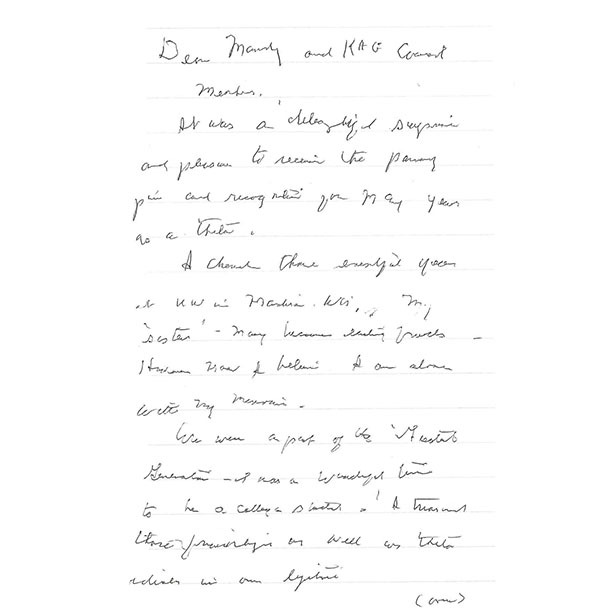 Dear Mandy and KAΘ Council
Members,
It was a delightful surprise
and pleasure to receive the pansy
pin and recognition for my years
as a Theta.
I cherish those eventful years
at UW in Madison, Wis, of my
'sisters' - many became lasting friends -
However now I believe I am alone
with my memories.
We were a part of the "Greatest
Generation - it was a wonderful time
to be a college student." I treasured
those friendships as well as Theta
ideals in our
(over)